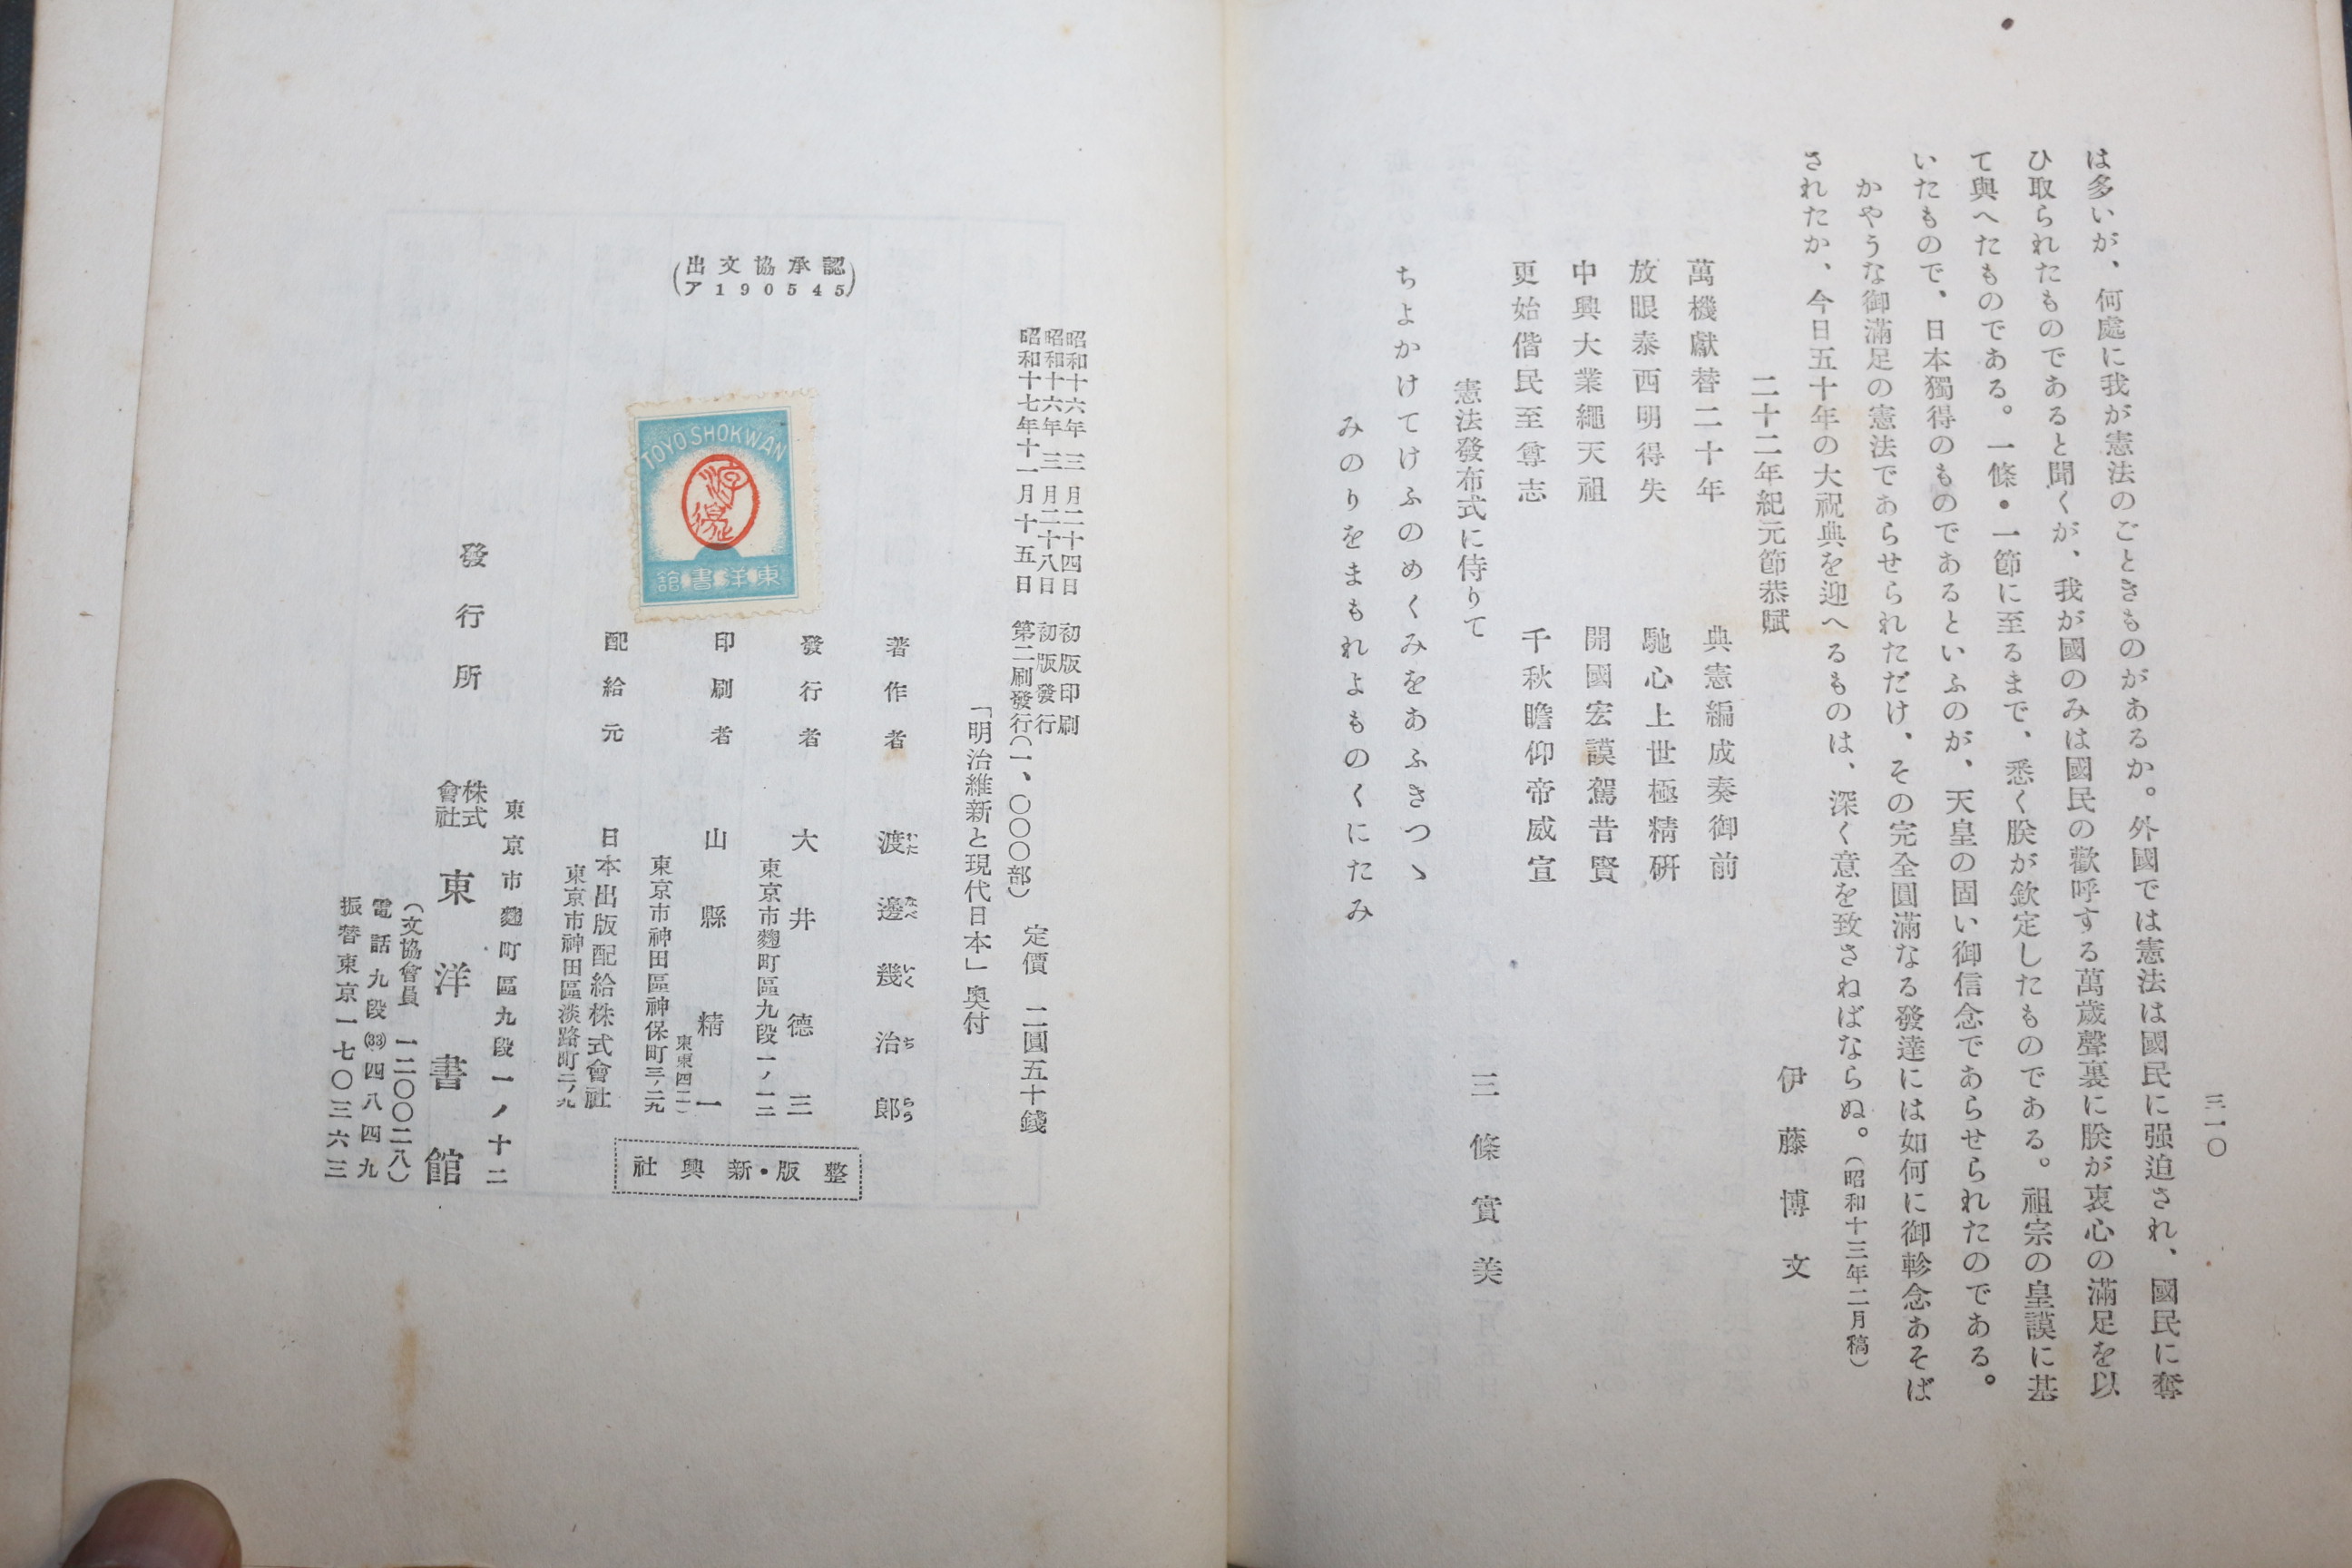 三一〇
は多いが、何處に我が憲法のごときものがあるか。外國では憲法は國民に强迫され、國民に奪
ひ取られたものであると聞くが、我が國のみは國民の歡呼する萬歲聲裏に朕が衷心の滿足を以
て與へたものである。一條・一節に至るまで、悉く朕が欽定したものである。祖宗の皇謨に基
いたもので、日本獨得のものであるといふのが、天皇の固い御信念であらせられたのである。
かやうな御滿足の憲法であらせられただけ、その完全圓滿なる發達には如何に御軫念あそば
されたか、今日五十年の大祝典を迎へるものは、深く意を致さねばならぬ。（昭和十三年二月稿）
二十二年紀元節恭賦　伊藤博文
萬機獻替二十年　典憲編成奏御前
放眼泰西明得失　馳心上世極精硏
中興大業繩天祖　開國宏謨駕昔賢
更始偕民至尊志　千秋瞻仰帝威宣
憲法發布式に侍りて　三條實美
ちよかけてけふのめぐみをあふきつゝ
みのりをまもれよものくにたみ
昭和十六年三月二十四日　初版印刷
昭和十六年三月二十八日　初版發行
昭和十七年十一月十五日　第二刷發行（一、〇〇〇部）　定價　二圓五十錢
「明治維新と現代日本」奧付
著作者　渡邊幾治郎
わた　なべ　いく　ぢ　らう
發行者　大井德三
東京市麴町區九段一ノ一二
印刷者　山縣精一
（東東四二）
東京市神田區神保町三ノ二九
配給元　日本出版配給株式會社
東京市神田區淡路町二ノ九
發行所
東京市麴町區九段一ノ十二
株式會社　東洋書館
（文協會員　一二〇〇二八）
電話九段(33)四八四九
振替東京一七〇三六三
認承協文出
(ア190545)
TOYO SHOKWAN
東洋書館
整版・新興社